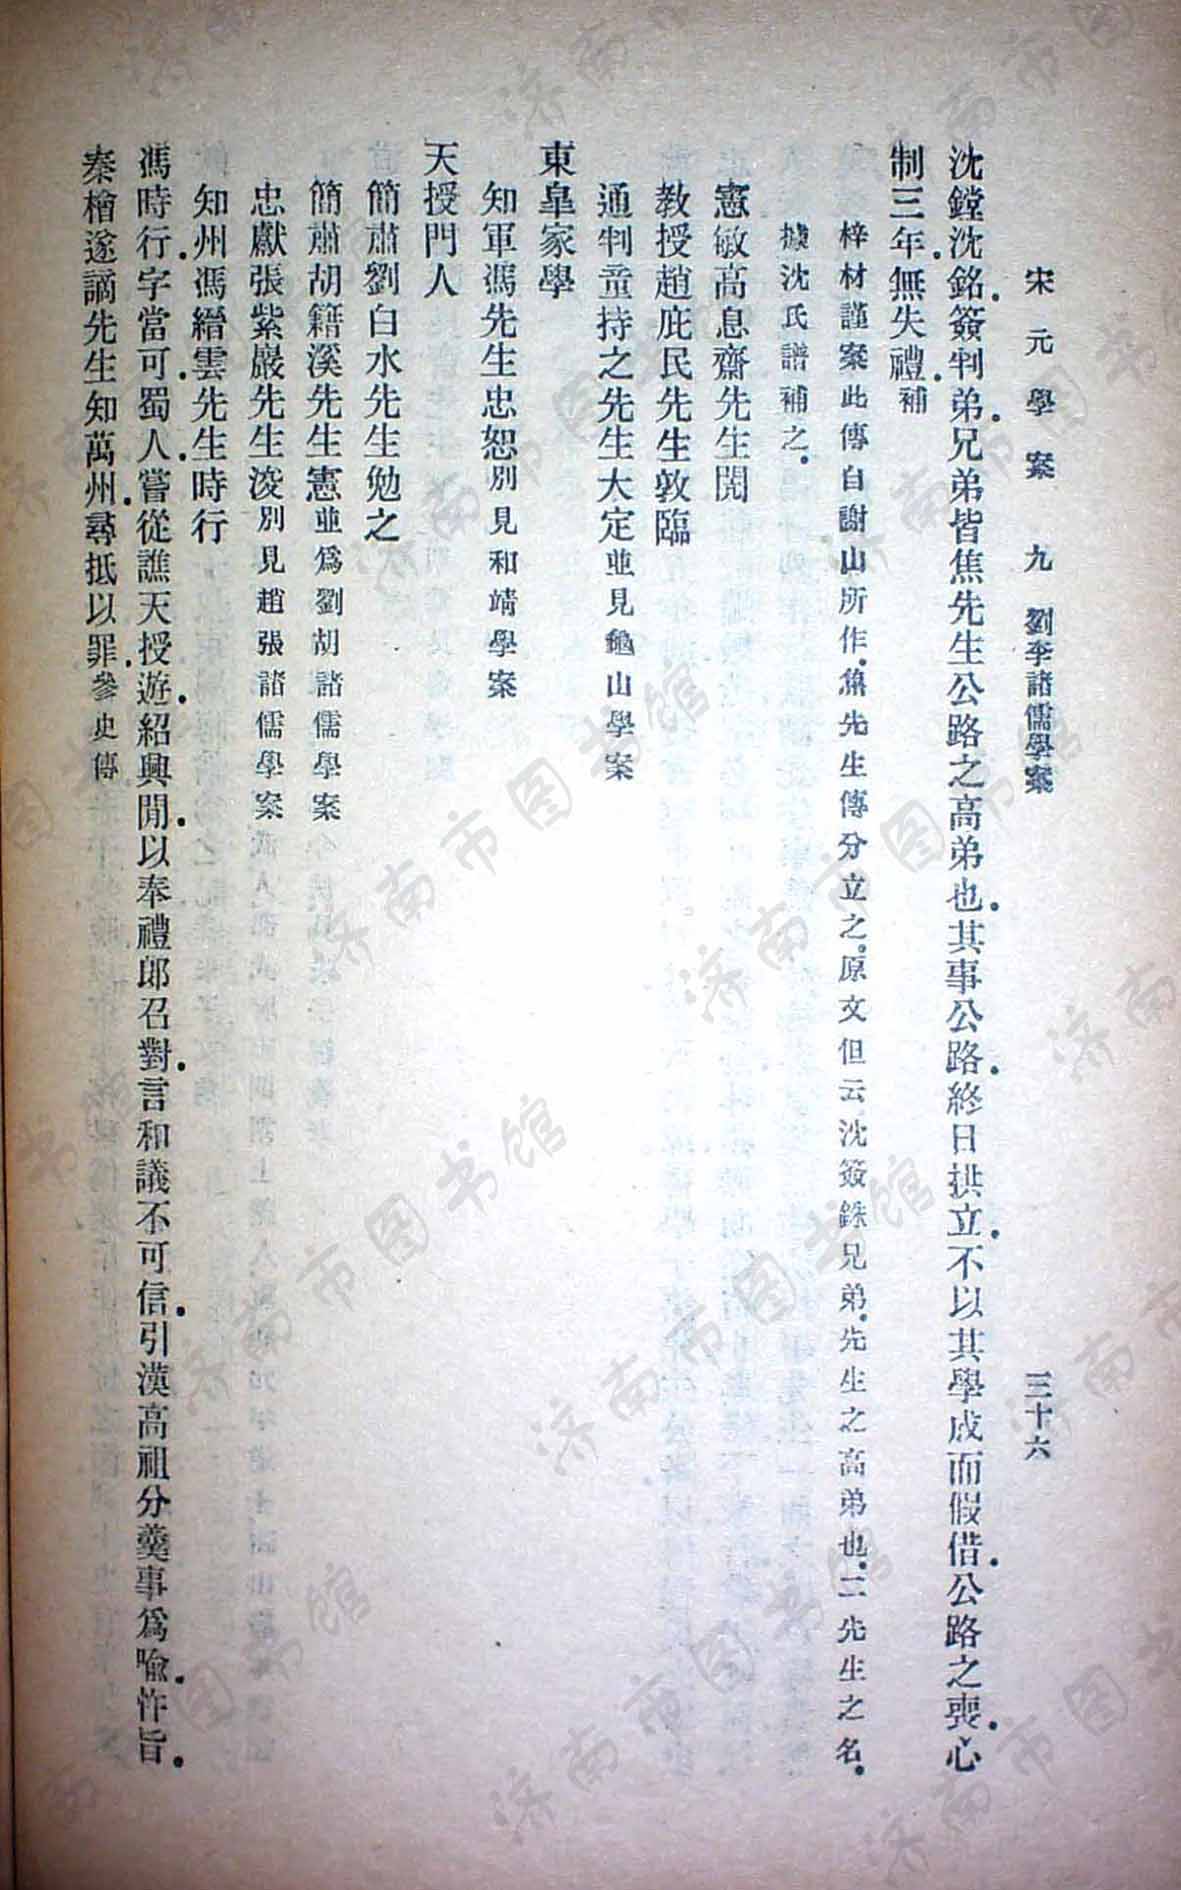 宋元學案 九 劉李諸儒學案 三十六
沈鏜沈銘簽判弟兄弟皆焦先生公路之高弟也其事公路終日拱立不以其學成而假借公路之喪心
制三年無失禮補
梓材謹案此傳自謝山所作焦先生傳分立之原文但云沈簽銖兄弟先生之高弟也二先生之名
據沈氏譜補之
憲敏高息齋先生閌
教授趙庇民先生敦臨
通判童持之先生大定並見龜山學案
東皐家學
知軍馮先生忠恕別見和靖學案
天授門人
簡肅劉白水先生勉之
簡肅胡籍溪先生憲並爲劉胡諸儒學案
忠獻張紫巖先生浚別見趙張諸儒學案
知州馮縉雲先生時行
馮時行字當可蜀人嘗從譙天授遊紹興閒以奉禮郎召對言和議不可信引漢高祖分羹事爲喩忤旨
秦檜遂謫先生知萬州尋抵以罪參史傳
济南市图书馆